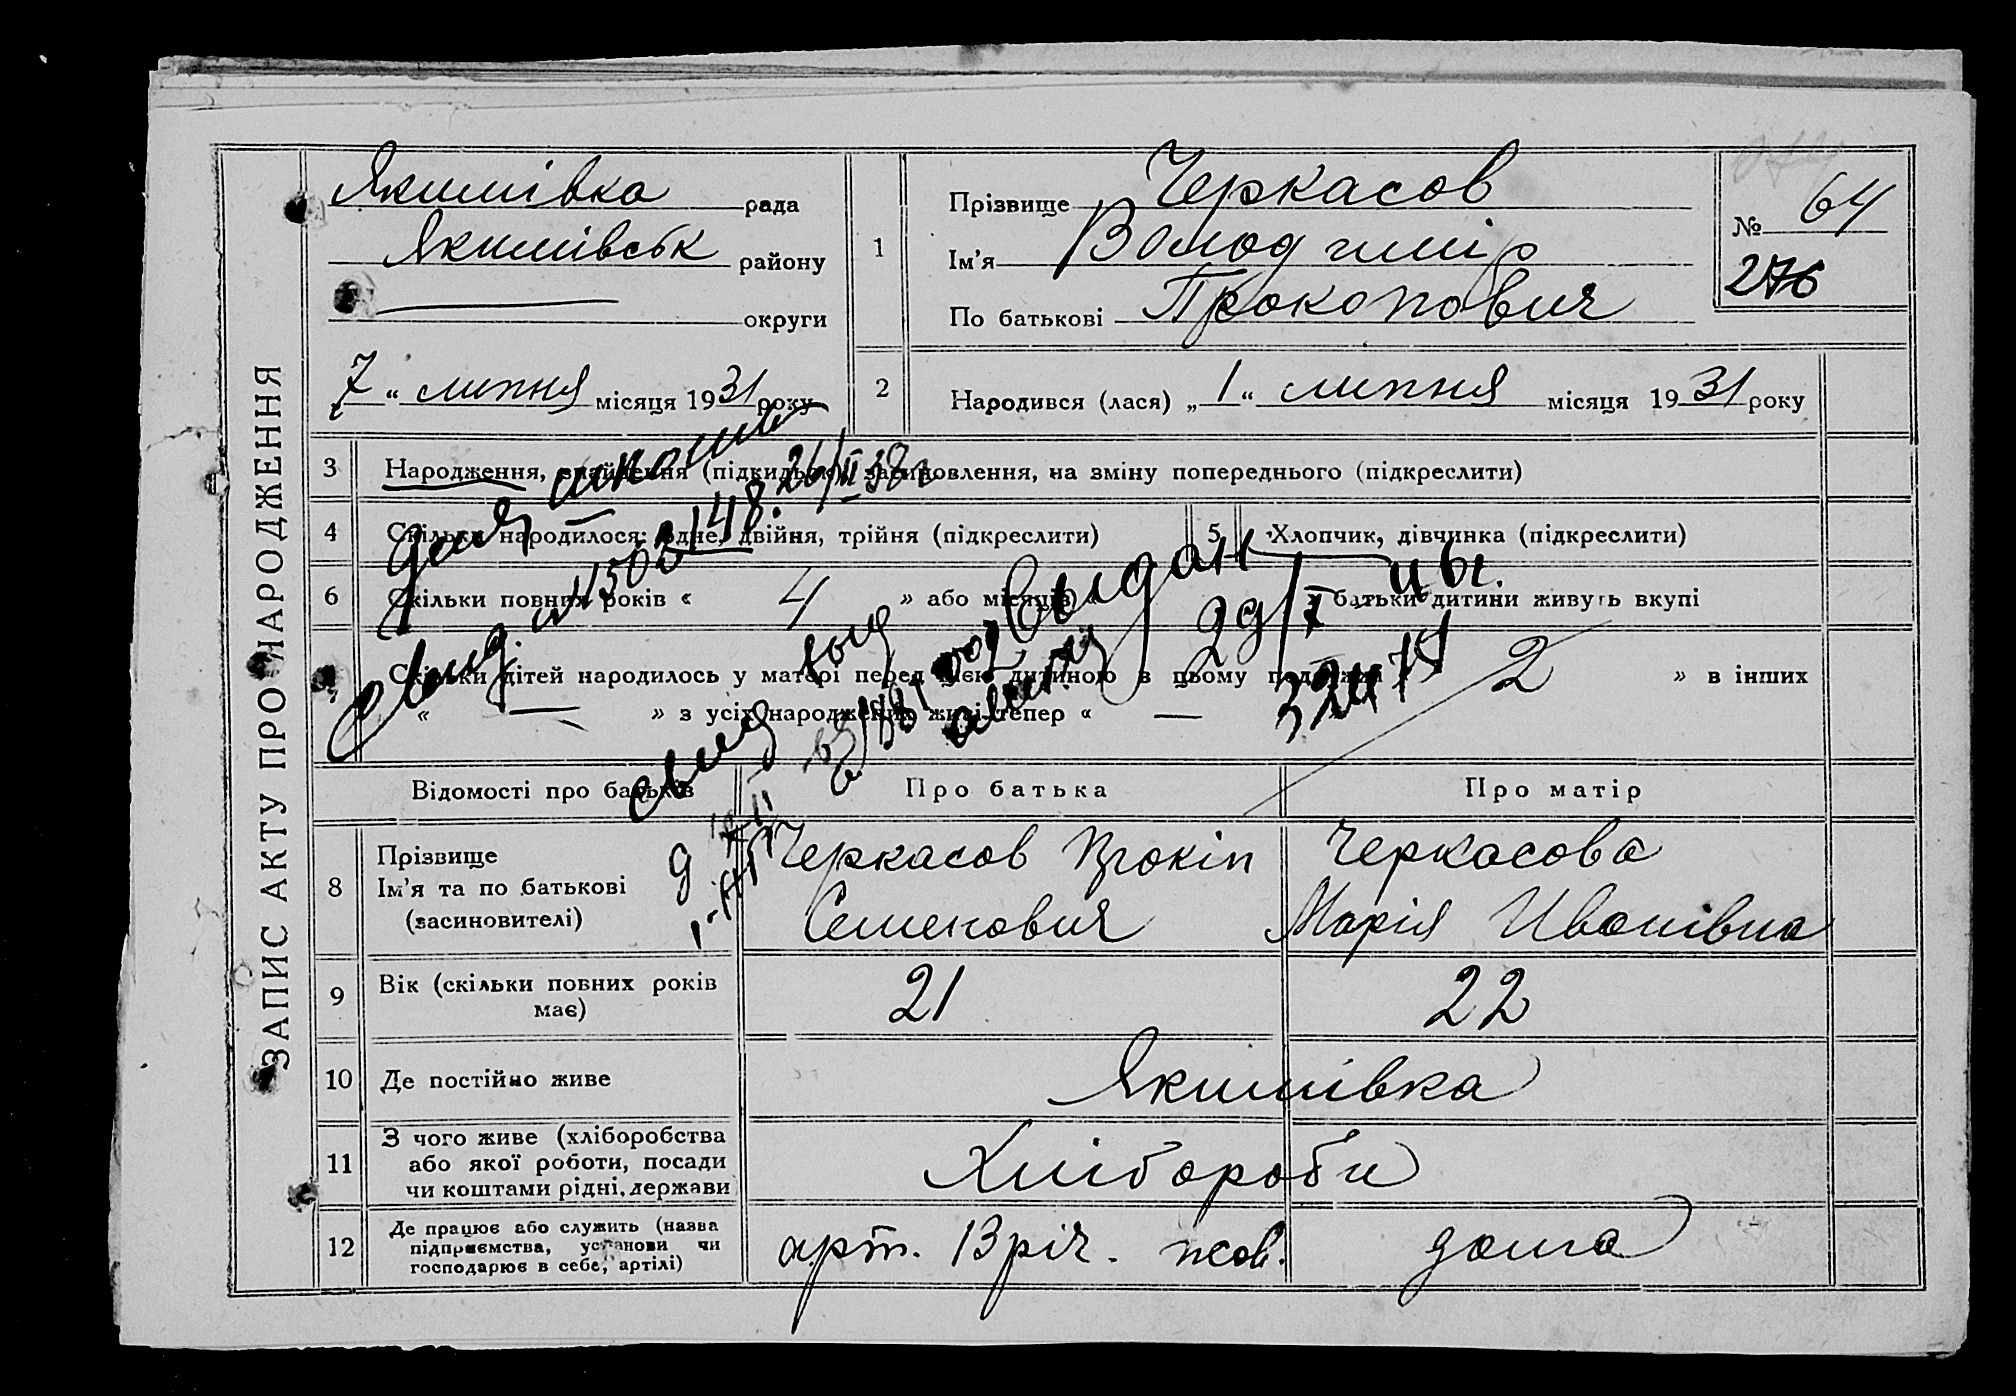 ЗАПИС АКТУ ПРО НАРОДЖЕННЯ
Якимівка рада
Якимівськ району
округи
7 " липня місяця 1931 року
1
Прізвище Черкасов
Ім'я Володимір
По батькові Прокопович
№ 64
276
2 Народився (лася) „ 1 " липня місяця 1931 року
3 Народження, знайдення (підкидька), засиновлення, на зміну попереднього (підкреслити)
4 Скільки народилося: одне, двійня, трійня (підкреслити)
5 Хлопчик, дівчинка (підкреслити)
6 Скільки повних років « 4 » або місяців « » батьки дитини живуть вкупі
Скільки дітей народилось у матері перед цією дитиною в цьому 2 » в інших
« — » з усіх народжених живі тепер « —
для школи
26/II 38 г
Выдан
Відомості про батьків
Про батька
Про матір
8 Прізвище
Ім'я та по батькові
(засиновителі)
Черкасов Прокіп
Семенович
Черкасова
Марія Иванівна
9 Вік (скільки повних років
має)
21
22
10 Де постійно живе
Якимівка
11 З чого живе (хліборобства
або якої роботи, посади
чи коштами рідні, держави
Хлібороби
12 Де працює або служить (назва
підприємства, установи чи
господарює в себе, артілі)
арт. 13 річ. жов.
дома